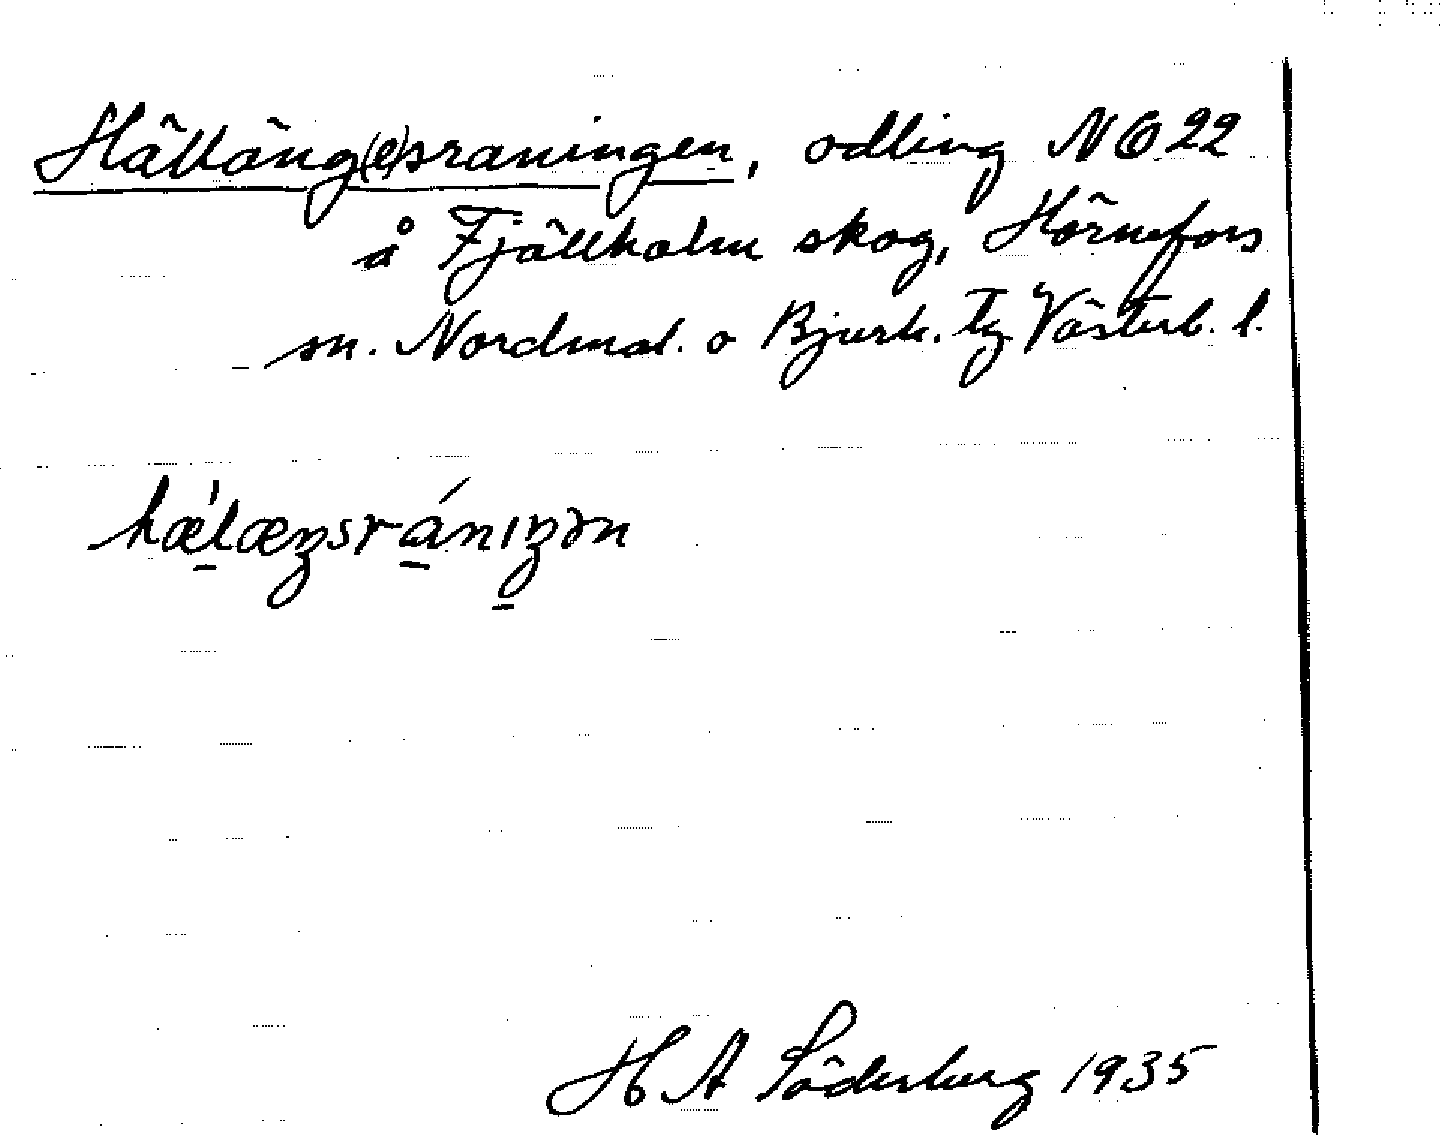 Hälläng(e)sraningen, odling NO 22
å Fjällholm skog, Hörnefors
sn. Nordmal. o Bjurh. tg Västerb. l.
hæ̀læŋsrániŋən
H A Söderberg 1935